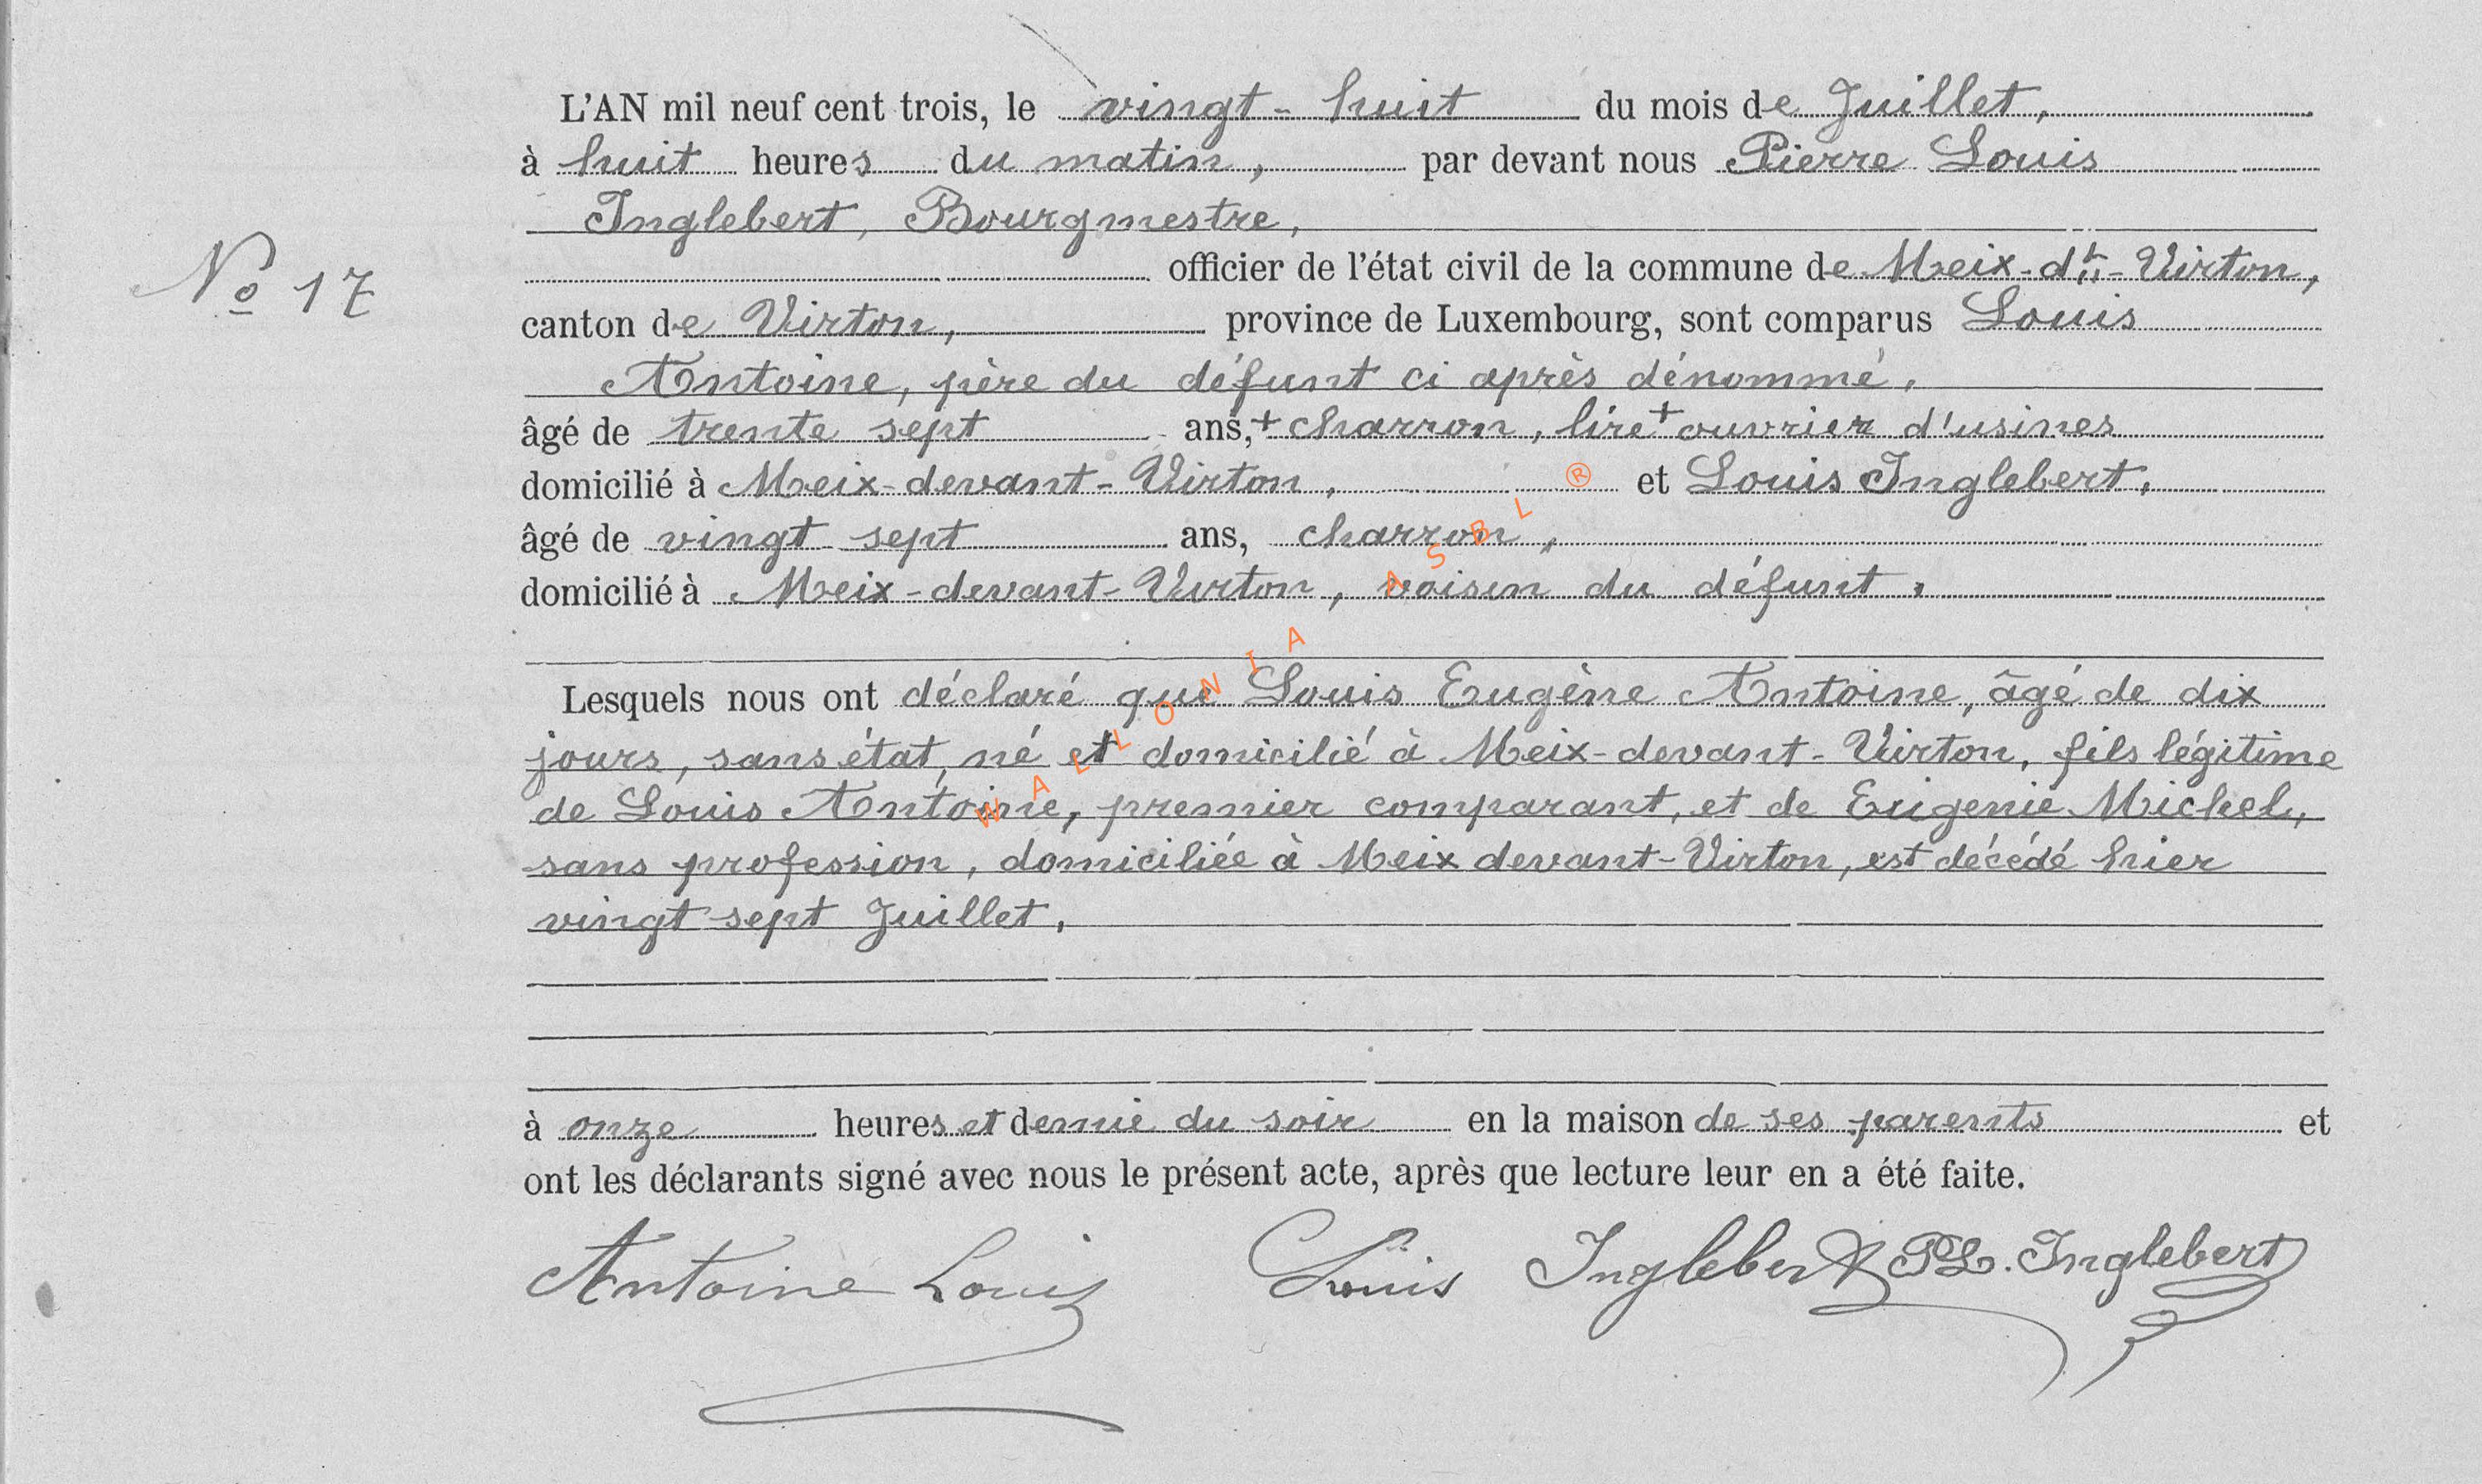 L'AN mil neuf cent trois, le vingt-huit du mois de Juillet,
à huit heures du matin, par devant nous Pierre Louis
Inglebert, Bourgmestre,
officier de l'état civil de la commune de Meix-dt-Virton,
N° 17
canton de Virton, province de Luxembourg, sont comparus Louis
Antoine, père du défunt ci après dénommé,
âgé de trente sept ans,+ charron, lire + ouvrier d'usines
domicilié à Meix-devant-Virton, et Louis Inglebert,
âgé de vingt sept ans, charron,
domicilié à Meix-devant-Virton, voisin du défunt,
Lesquels nous ont déclaré que Louis Eugène Antoine, âgé de dix
jours, sans état, né et domicilié à Meix-devant-Virton, fils légitime
de Louis Antoine, premier comparant, et de Eugenie Michel,
sans profession, domiciliée à Meix devant-Virton, est décédé hier
vingt sept Juillet,
à onze heures et demie du soir en la maison de ses parents et
ont les déclarants signé avec nous le présent acte, après que lecture leur en a été faite.
Antoine Louis Louis Inglebert PL. Inglebert
WALLONIA ASBL ®